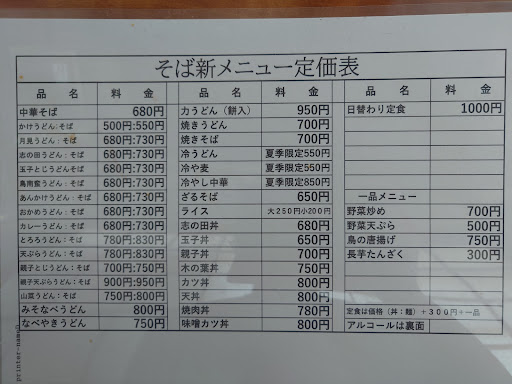 そば新メニュー定価表
品 名 料 金
中華そば 680円
かけうどん:そば 500円:550円
月見うどん:そば 680円:730円
志の田うどん:そば 680円:730円
玉子とじうどん:そば 680円:730円
鳥南蛮うどん:そば 680円:730円
あんかけうどん:そば 680円:730円
おかめうどん:そば 680円:730円
カレーうどん:そば 680円:730円
とろろうどん:そば 780円:830円
天ぷらうどん:そば 780円:830円
親子とじうどん:そば 700円:750円
親子天ぷらうどん:そば 900円:950円
山菜うどん:そば 750円:800円
みそなべうどん 800円
なべやきうどん 750円
品 名 料 金
力うどん(餅入) 950円
焼きうどん 700円
焼きそば 700円
冷うどん 夏季限定550円
冷や麦 夏季限定550円
冷やし中華 夏季限定850円
ざるそば 650円
ライス 大250円小200円
志の田丼 680円
玉子丼 650円
親子丼 700円
木の葉丼 750円
カツ丼 800円
天丼 800円
焼肉丼 780円
味噌カツ丼 800円
品 名 料 金
日替わり定食 1000円
一品メニュー
野菜炒め 700円
野菜天ぷら 500円
鳥の唐揚げ 750円
長芋たんざく 300円
定食は価格(丼:麺)+300円+一品
アルコールは裏面